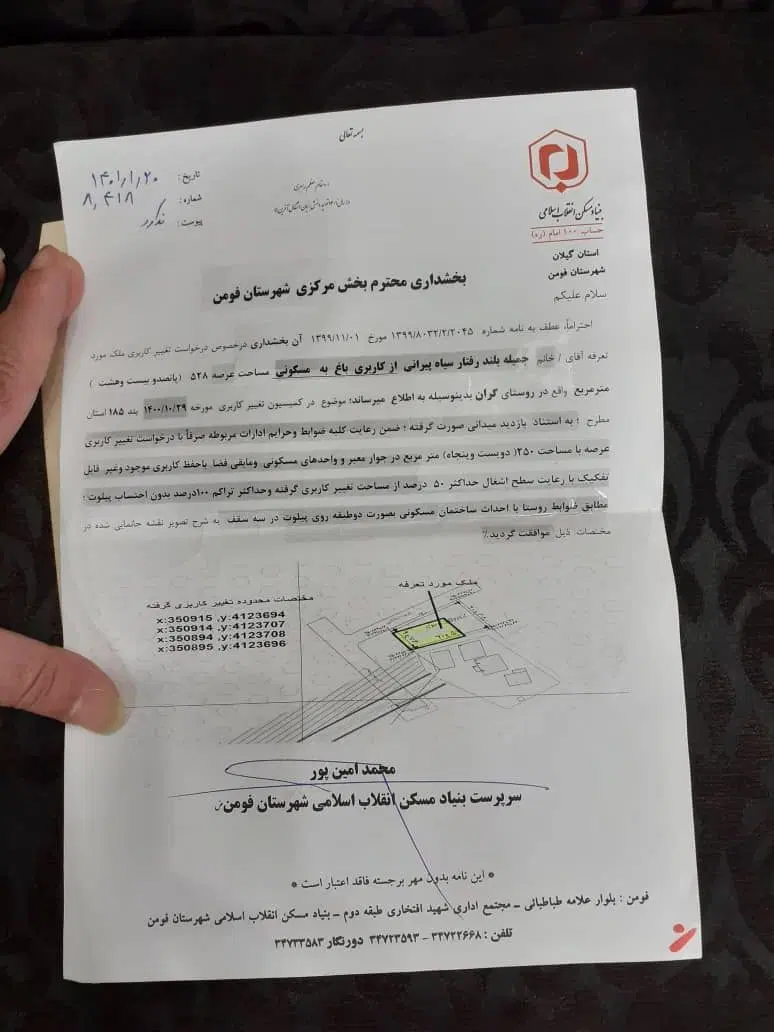 بسمه تعالی
بنیاد مسکن انقلاب اسلامی
حساب ۱۰۰ امام (ره)
استان گیلان
شهرستان فومن
تاریخ: ۱۴۰۱/۱/۲۰
شماره: ۸,۴۱۸
پیوست: ندارد
بخشداری محترم بخش مرکزی شهرستان فومن
سلام علیکم
احتراماً، عطف به نامه شماره ۱۳۹۹/۸۰۳۲/۲/۲۰۴۵ مورخ ۱۳۹۹/۱۱/۰۱ آن بخشداری درخصوص درخواست تغییر کاربری ملک مورد
تعرفه آقای / خانم جمیله بلند رفتار سیاه پیرانی از کاربری باغ به مسکونی مساحت عرصه ۵۲۸ (پانصدو بیست وهشت)
مترمربع واقع در روستای گران بدینوسیله به اطلاع میرساند؛ موضوع در کمیسیون تغییر کاربری مورخه ۱۴۰۰/۱۰/۲۹ بند ۱۸۵ استان
مطرح ؛ به استناد بازدید میدانی صورت گرفته ؛ ضمن رعایت کلیه ضوابط وحرایم ادارات مربوطه صرفاً با درخواست تغییر کاربری
عرصه با مساحت ۲۵۰( دویست وپنجاه) متر مربع در جوار معبر و واحدهای مسکونی ومابقی فضا باحفظ کاربری موجود وغیر قابل
تفکیک با رعایت سطح اشغال حداکثر ۵۰ درصد از مساحت تغییر کاربری گرفته وحداکثر تراکم ۱۰۰درصد بدون احتساب پیلوت ؛
مطابق ضوابط روستا با احداث ساختمان مسکونی بصورت دوطبقه روی پیلوت در سه سقف به شرح تصویر نقشه جانمایی شده در
مختصات ذیل موافقت گردید٪
ملک مورد تعرفه
مختصات محدوده تغییر کاربری گرفته
x:350915 ,y:4123694
x:350914 ,y:4123707
x:350894 ,y:4123708
x:350895 ,y:4123696
محمد امین پور
سرپرست بنیاد مسکن انقلاب اسلامی شهرستان فومن
* این نامه بدون مهر برجسته فاقد اعتبار است *
فومن : بلوار علامه طباطبائی ـ مجتمع اداری شهید افتخاری طبقه دوم ـ بنیاد مسکن انقلاب اسلامی شهرستان فومن
تلفن : ۳۴۷۲۲۶۶۸ - ۳۴۷۲۳۵۹۳ دورنگار ۳۴۷۳۳۵۸۳